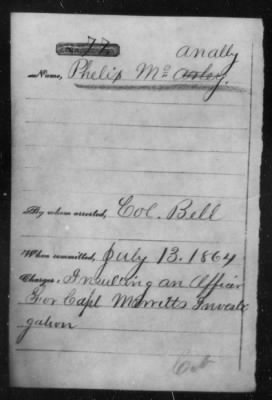 77 anally
Name, Phelip Mc
By whom arrested, Col. Bell
When committed, July 13. 1864
Charges, Insulting an Officer
For Capt Merretts Investi
gation